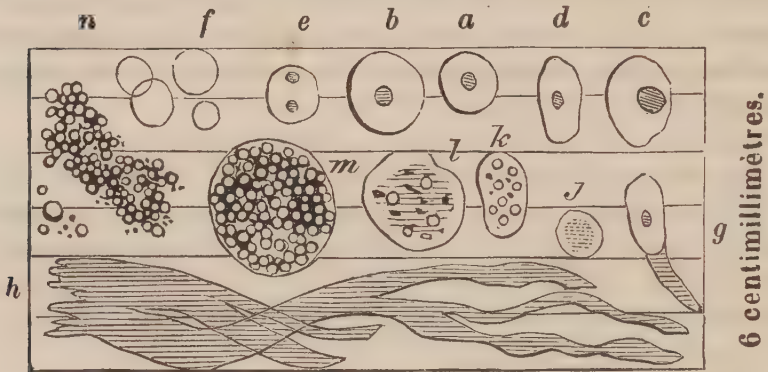 n f e b a d c
m l k J g
h
6 centimillimètres.